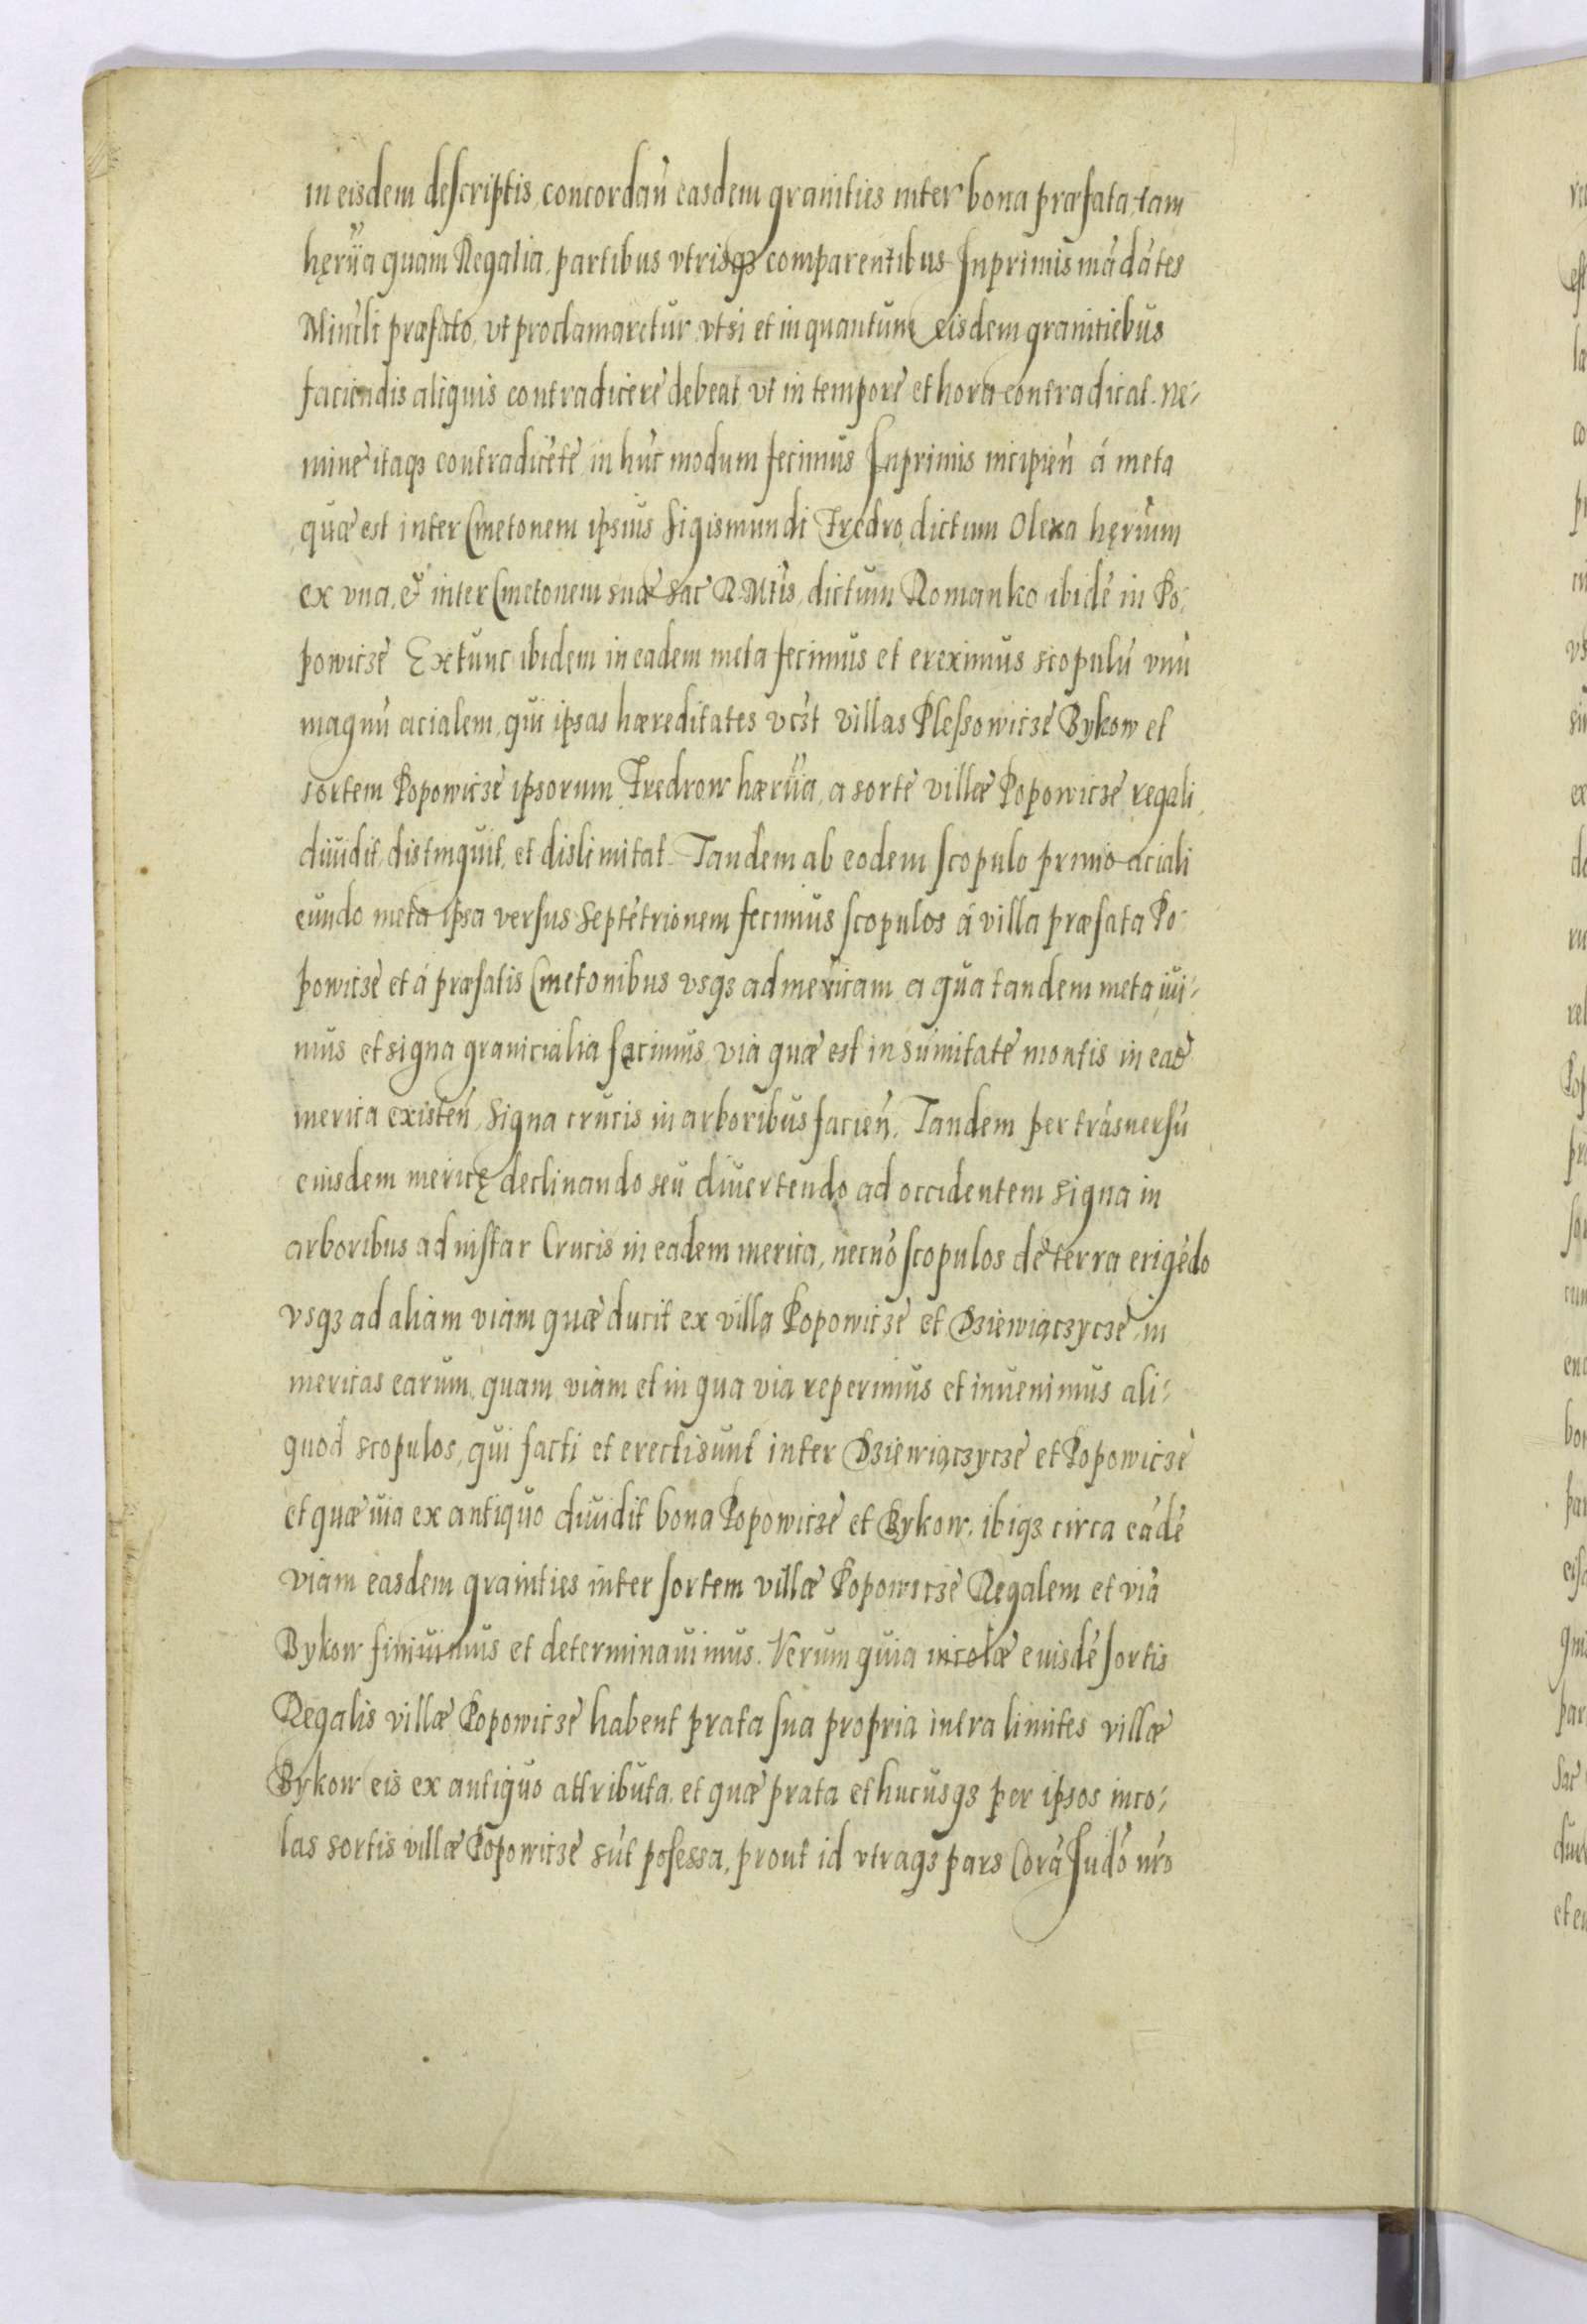 in eisdem descriptis, concordan̄ easdem granities inter bona præfata, tam
hęrīia quam Regalia, partibus vtrisqꝫ comparentibus Inprimis mādātes
Minr̄li præfato, vt proclamaretur. vt si et in quantum eisdem granitiebus
faciendis aliquis contradicere debeat, vt in tempore et hora contradicat. Ne-
mine itaqꝫ contradicēte, in hūc modum fecimus Inprimis incipien̄ á meta
quæ est inter Cmetonem ipsius Sigismundi Fredro, dictum Olexa hęrīum
ex vna, et inter Cmetonem suæ Sac̄ R. Mt̄is, dictum Romanko ibidē in Po-
powicze Extunc ibidem in eadem meta fecimus et ereximus scopulū vnū
magnū acialem, qui ipsas hæreditates vcꝫt villas Plessowicze Bykow et
sortem Popowicze ipsorum Fredrow hærīia, a sorte villæ Popowicze regali
diuidit, distinguit, et dislimitat. Tandem ab eodem scopulo primo aciali
eundo meta ipsa versus Septētrionem fecimus scopulos á villa præfata Po-
powicze et á præfatis Cmetonibus vsqꝫ ad mericam, a qua tandem meta iui-
mus et signa granicialia facimus, via quæ est in sūmitate montis in eadē
merica existen̄, Signa crucis in arboribus facien̄. Tandem per trāsuersū
eiusdem mericę declinando seu diuertendo ad occidentem signa in
arboribus ad instar Crucis in eadem merica, necnō scopulos de terra erigēdo
vsqꝫ ad aliam viam quæ ducit ex villa Popowicze et Dziewiączycze, in
mericas earum, quam viam et in qua via reperimus et inuenimus ali-
quod scopulos, qui facti et erecti sunt inter Dziewiączycze et Popowicze
et quæ uia ex antiquo diuidit bona Popowicze et Bykow, ibiqꝫ circa eādē
viam easdem granities inter sortem villæ Popowicze Regalem et viā
Bykow finiuimus et determinauimus. Verum quia incolæ eiusdē sortis
Regalis villæ Popowicze habent prata sua propria intra limites villæ
Bykow eis ex antiquo attributa, et quæ prata et hucusqꝫ per ipsos inco-
las sortis villæ Popowicze sūt posessa, prout id vtraqꝫ pars Corā Iudō nr̄o